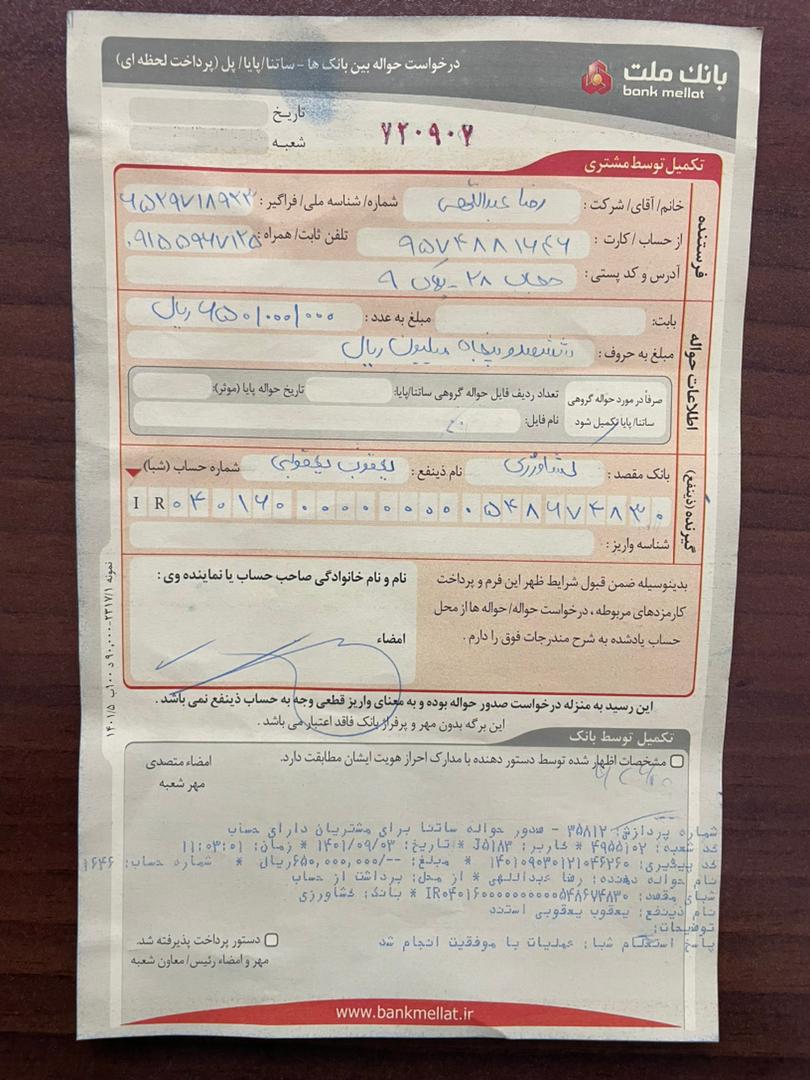 بانک ملت
bank mellat
درخواست حواله بین بانک ها - ساتنا/پایا/ پل (پرداخت لحظه ای)
تاریخ
شعبه
۷۲۰۹۰۷
تکمیل توسط مشتری
فرستنده
خانم/ آقای/ شرکت: رضا عبداللهی شماره/ شناسه ملی/ فراگیر:
از حساب/ کارت: ۹۵۷۴۸۸۱۶۴۶ تلفن ثابت/ همراه: ۰۹۱۵۵۹۶۷۱۲۵
آدرس و کد پستی: ۲۸ - پلاک ۹
اطلاعات حواله
بابت: مبلغ به عدد: ۶۵۰/۰۰۰/۰۰۰ ریال
مبلغ به حروف: ششصد و پنجاه میلیون ریال
صرفاً در مورد حواله گروهی ساتنا/ پایا تکمیل شود
تعداد ردیف فایل حواله گروهی ساتنا/پایا: تاریخ حواله پایا (موثر):
نام فایل:
گیرنده (ذینفع)
بانک مقصد: کشاورزی نام ذینفع: یعقوب یعقوبی شماره حساب (شبا)
IR ۰۴۰۱۶۰۰۰۰۰۰۰۰۰۰۵۴۸۶۷۴۸۳۰
شناسه واریز:
بدینوسیله ضمن قبول شرایط ظهر این فرم و پرداخت
کارمزدهای مربوطه، درخواست حواله/ حواله ها از محل
حساب یادشده به شرح مندرجات فوق را دارم.
نام و نام خانوادگی صاحب حساب یا نماینده وی:
امضاء
این رسید به منزله درخواست صدور حواله بوده و به معنای واریز قطعی وجه به حساب ذینفع نمی باشد.
این برگه بدون مهر و پرفراژ بانک فاقد اعتبار می باشد.
نمونه ۲۳۱۷/۱-۹۰,۰۰۰ د ۱۰۰ب ۱۴۰۱/۵
تکمیل توسط بانک
مشخصات اظهار شده توسط دستور دهنده با مدارک احراز هویت ایشان مطابقت دارد.
امضاء متصدی
مهر شعبه
شماره پردازش: ۳۵۸۱۲ - صدور حواله ساتنا برای مشتریان دارای حساب
کد شعبه: ۴۹۵۵۱۰۲ * کاربر: J۵۱۸۳ * تاریخ: ۱۴۰۱/۰۹/۰۳ * زمان: ۱۱:۰۳:۰۱
کد پیگیری: ۱۴۰۱۰۹۰۳۰۱۲۱۰۴۶۲۶۰ * مبلغ: --/۶۵۰,۰۰۰,۰۰۰ریال * شماره حساب: ۱۶۴۶
نام حواله دهنده: رضا عبداللهی * از محل: برداشت از حساب
شبای مقصد: IR۰۴۰۱۶۰۰۰۰۰۰۰۰۰۰۵۴۸۶۷۴۸۳۰ * بانک: کشاورزی
نام ذینفع: یعقوب یعقوبی استند
توضیحات:
پاسخ استعلام شبا: عملیات با موفقیت انجام شد
دستور پرداخت پذیرفته شد.
مهر و امضاء رئیس/ معاون شعبه
www.bankmellat.ir